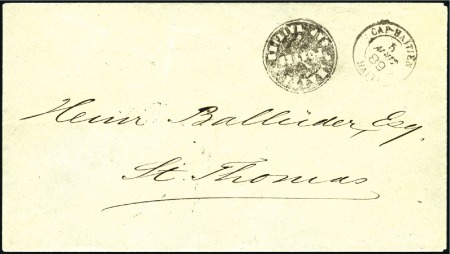 CAP-HAITIEN
5
88
HAITI
Heinr Ballüder, Esq.
St Thomas